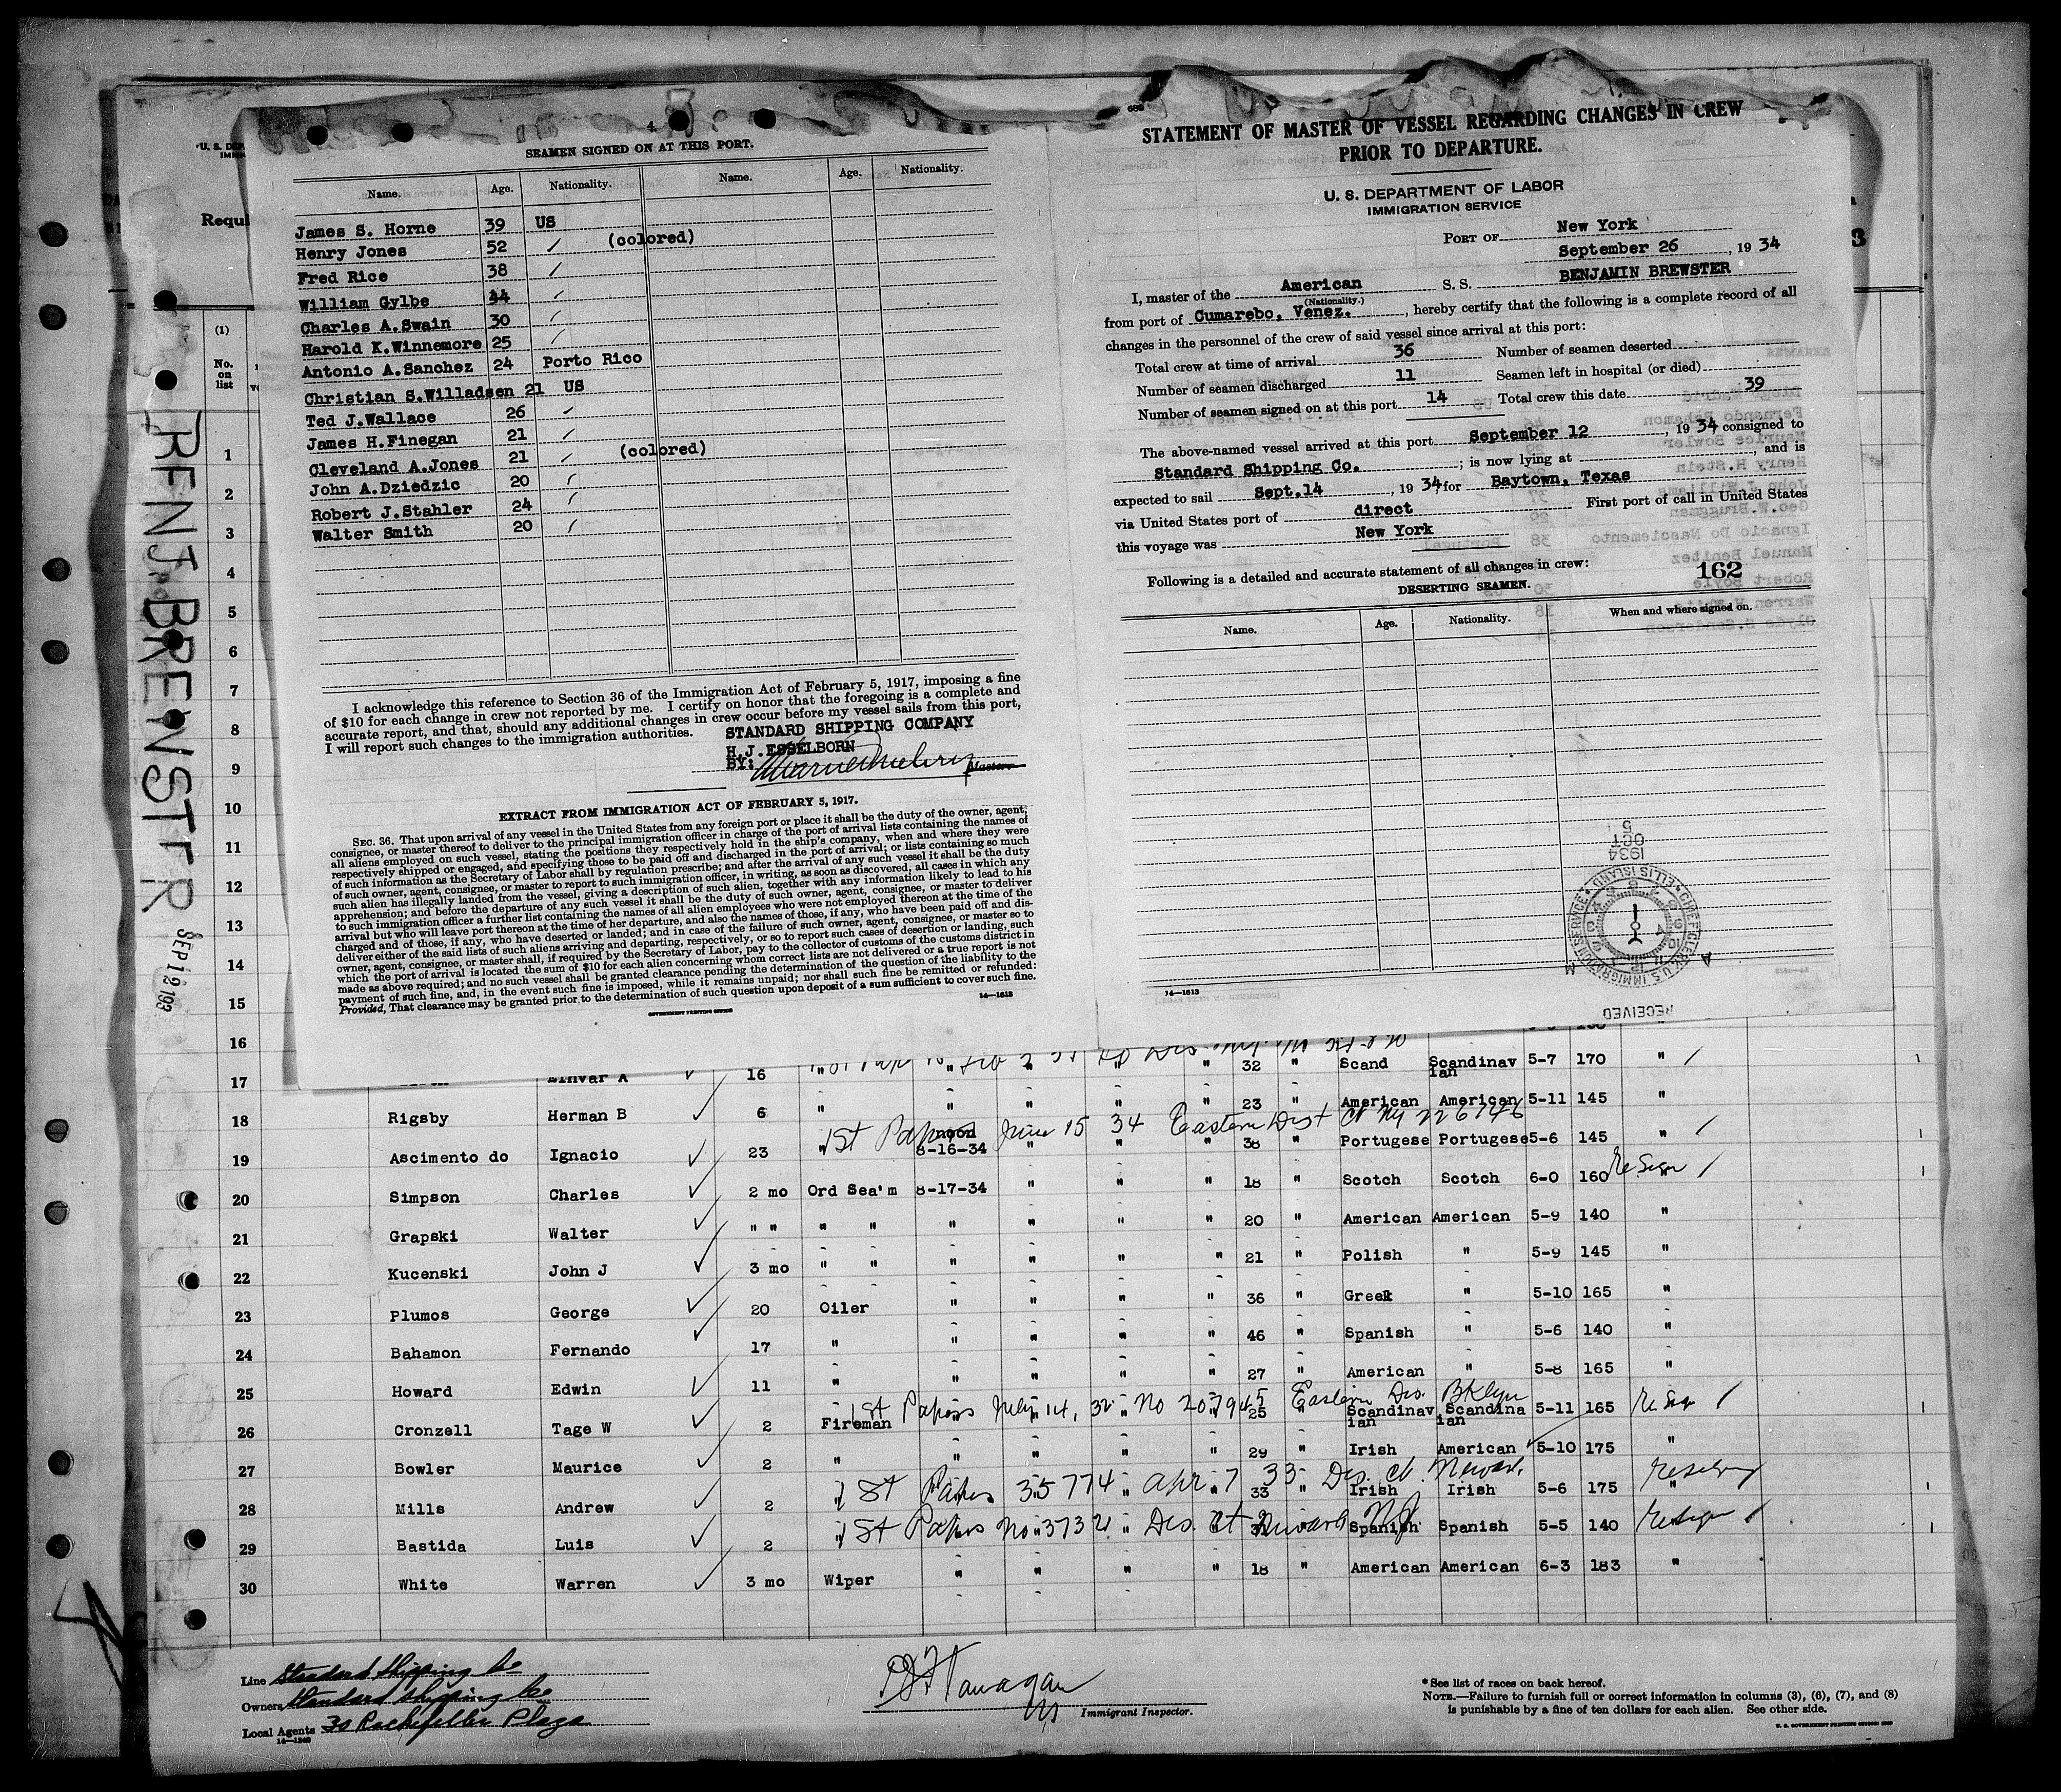 4
SEAMEN SIGNED ON AT THIS PORT.
Name. Age. Nationality. Name. Age. Nationality.
James S. Horne 39 US
Henry Jones 52 (colored)
Fred Rice 38
William Gylbe 44
Charles A.Swain 30
Harold K.Winnemore 25
Antonio A.Sanchez 24 Porto Rico
Christian S.Willadsen 21 US
Ted J.Wallace 26
James H.Finegan 21
Cleveland A.Jones 21 (colored)
John A.Dziedzic 20
Robert J.Stahler 24
Walter Smith 20
I acknowledge this reference to Section 36 of the Immigration Act of February 5, 1917, imposing a fine
of $10 for each change in crew not reported by me. I certify on honor that the foregoing is a complete and
accurate report, and that, should any additional changes in crew occur before my vessel sails from this port,
I will report such changes to the immigration authorities.
STANDARD SHIPPING COMPANY
H.J.ESSELBORN
BY:
Master.
EXTRACT FROM IMMIGRATION ACT OF FEBRUARY 5, 1917.
SEC. 36. That upon arrival of any vessel in the United States from any foreign port or place it shall be the duty of the owner, agent,
consignee, or master thereof to deliver to the principal immigration officer in charge of the port of arrival lists containing the names of
all aliens employed on such vessel, stating the positions they respectively hold in the ship's company, when and where they were
respectively shipped or engaged, and specifying those to be paid off and discharged in the port of arrival; or lists containing so much
of such information as the Secretary of Labor shall by regulation prescribe; and after the arrival of any such vessel it shall be the duty
of such owner, agent, consignee, or master to report to such immigration officer, in writing, as soon as discovered, all cases in which any
such alien has illegally landed from the vessel, giving a description of such alien, together with any information likely to lead to his
apprehension; and before the departure of any such vessel it shall be the duty of such owner, agent, consignee, or master to deliver
to such immigration officer a further list containing the names of all alien employees who were not employed thereon at the time of the
arrival but who will leave port thereon at the time of her departure, and also the names of those, if any, who have been paid off and dis-
charged and of those, if any, who have deserted or landed; and in case of the failure of such owner, agent, consignee, or master so to
deliver either of the said lists of such aliens arriving and departing, respectively, or so to report such cases of desertion or landing, such
owner, agent, consignee, or master shall, if required by the Secretary of Labor, pay to the collector of customs of the customs district in
which the port of arrival is located the sum of $10 for each alien concerning whom correct lists are not delivered or a true report is not
made as above required; and no such vessel shall be granted clearance pending the determination of the question of the liability to the
payment of such fine, and, in the event such fine is imposed, while it remains unpaid; nor shall such fine be remitted or refunded:
Provided, That clearance may be granted prior to the determination of such question upon deposit of a sum sufficient to cover such fine.
GOVERNMENT PRINTING OFFICE 14—1613
STATEMENT OF MASTER OF VESSEL REGARDING CHANGES IN CREW
PRIOR TO DEPARTURE.
U. S. DEPARTMENT OF LABOR
IMMIGRATION SERVICE
PORT OF New York
September 26, 19 34
I, master of the American S. S. BENJAMIN BREWSTER
(Nationality.)
from port of Cumarebo, Venez., hereby certify that the following is a complete record of all
changes in the personnel of the crew of said vessel since arrival at this port:
Total crew at time of arrival 36 Number of seamen deserted
Number of seamen discharged 11 Seamen left in hospital (or died)
Number of seamen signed on at this port 14 Total crew this date 39
The above-named vessel arrived at this port September 12, 19 34, consigned to
Standard Shipping Co.; is now lying at , and is
expected to sail Sept.14, 19 34, for Baytown, Texas
via United States port of direct First port of call in United States
this voyage was New York
Following is a detailed and accurate statement of all changes in crew: 162
DESERTING SEAMEN.
Name. Age. Nationality. When and where signed on.
14—1613
1934
OCT
5
CHIEF CLERK U.S. IMMIGRATION SERVICE • ELLIS ISLAND
RECEIVED
Requi
3
(1)
No.
on
list
BENJ BREWSTER
SEP 12 193
1
2
3
4
5
6
7
8
9
10
11
12
13
14
15
16
17 16 " " " " 32 " Scand Scandinavian 5-7 170 "
18 Rigsby Herman B 6 " " " " " 23 " American American 5-11 145 "
1st Papers June 15 34 Eastern Dist Ct NY 226746
19 Ascimento do Ignacio 23 " 8-16-34 " " " 38 " Portugese Portugese 5-6 145 "
20 Simpson Charles 2 mo Ord Sea'm 8-17-34 " " " 18 " Scotch Scotch 6-0 160 Re Sign
21 Grapski Walter " " " " " " " " 20 " American American 5-9 140 "
22 Kucenski John J 3 mo " " " " " " 21 " Polish " 5-9 145 "
23 Plumos George 20 Oiler " " " " 36 " Greek " 5-10 165 "
24 Bahamon Fernando 17 " " " " " 46 " Spanish " 5-6 140 "
25 Howard Edwin 11 " " " " " 27 " American " 5-8 165 "
1st Papers July 14, 32 No 207945 Eastern Dis. Bklyn
26 Cronzell Tage W 2 Fireman 25 Scandinavian Scandinavian 5-11 165 Re Sign
27 Bowler Maurice 2 " " " " " 29 " Irish American 5-10 175 "
1st Papers 35774 Apr 7 33 Dis. Ct. Newark
28 Mills Andrew 2 " " " " " 33 " Irish Irish 5-6 175 resign
1st Papers No 37321 Dis. Ct Newark NJ
29 Bastida Luis 2 " " " " Spanish Spanish 5-5 140 resign
30 White Warren 3 mo Wiper " " " " 18 " American American 6-3 183 "
Line Standard Shipping Co
Owners Standard Shipping Co
Local Agents 30 Rockefeller Plaza
14—1240
Immigrant Inspector.
*See list of races on back hereof.
NOTE.—Failure to furnish full or correct information in columns (3), (6), (7), and (8)
is punishable by a fine of ten dollars for each alien. See other side.